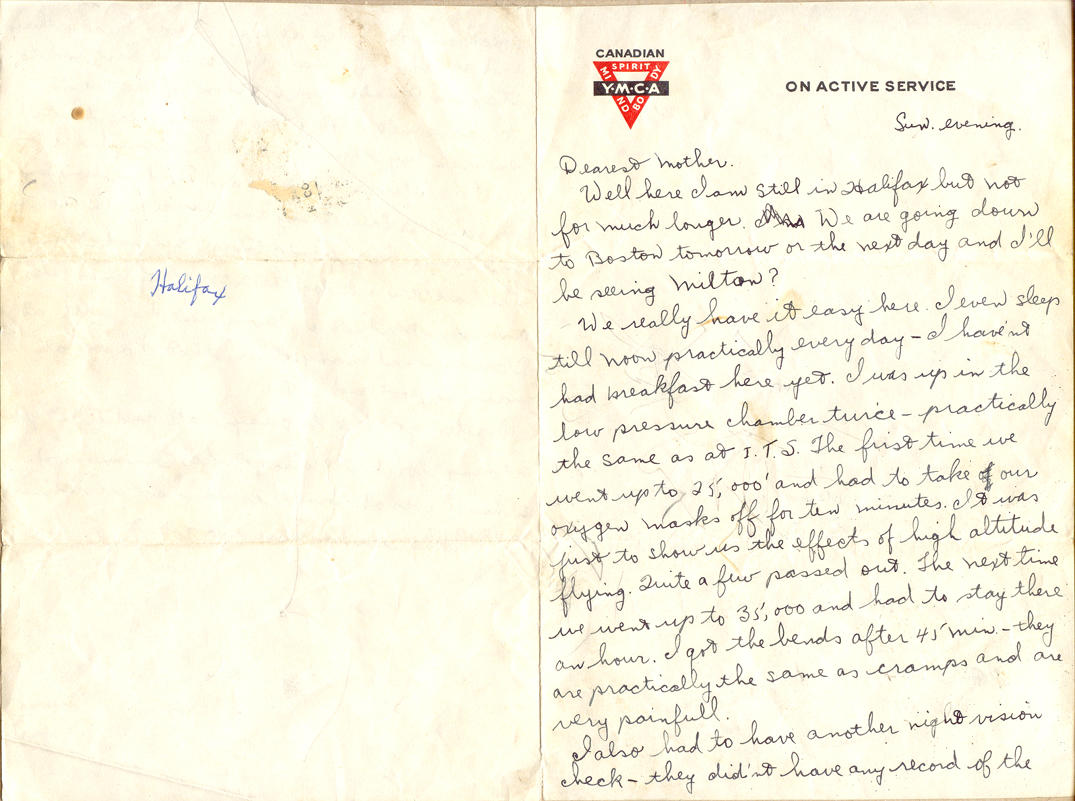 Halifax
CANADIAN
SPIRIT
MIND
BODY
Y·M·C·A
ON ACTIVE SERVICE
Sun. evening.
Dearest Mother.
Well here I am still in Halifax but not
for much longer. We are going down
to Boston tomorrow or the next day and I'll
be seeing Milton?
We really have it easy here. I even sleep
till noon practically every day – I have'nt
had breakfast here yet. I was up in the
low pressure chamber twice – practically
the same as at I.T.S. The first time we
went up to 25,000' and had to take our
oxygen masks off for ten minutes. It was
just to show us the effects of high altitude
flying. Quite a few passed out. The next time
we went up to 35,000 and had to stay there
an hour. I got the bends after 45 min. – they
are practically the same as cramps and are
very painfull.
I also had to have another night vision
check – they did'nt have any record of the